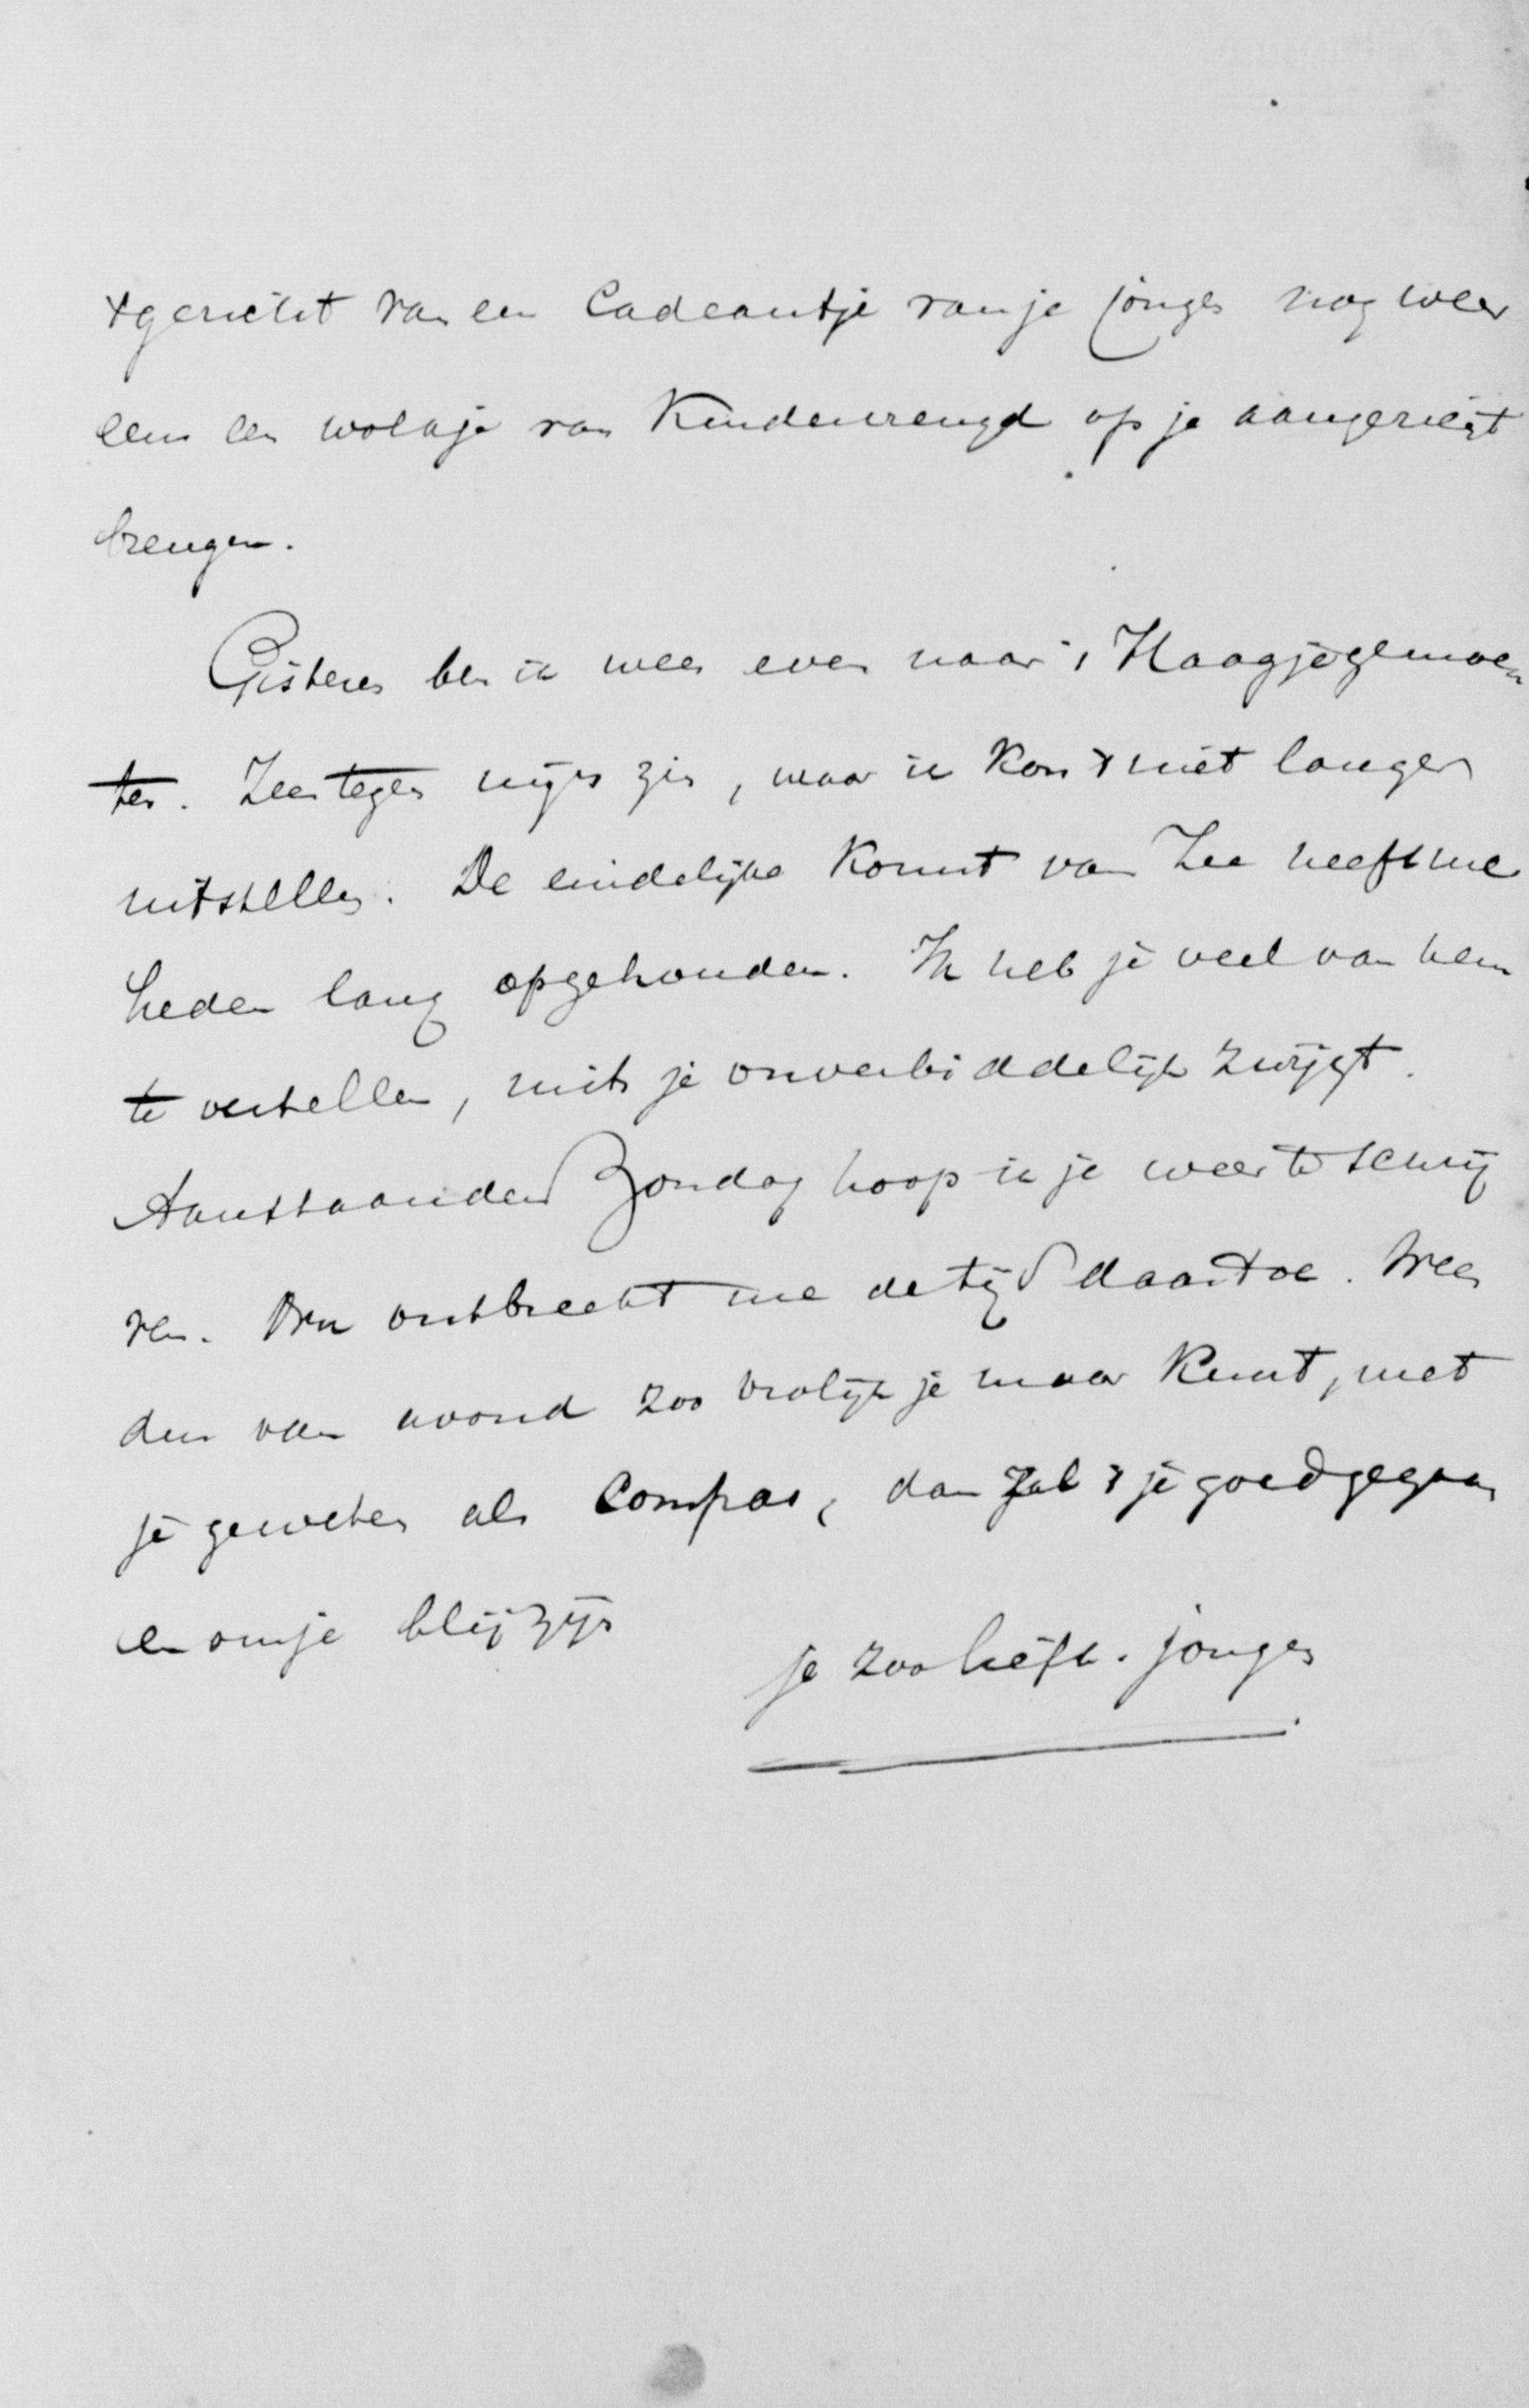 't gezicht van een Cadeautje van je jongen nog weer
eens een wolkje van Kindervreugd op je aangezigt
brengen.
Gisteren ben ik weer even naar 's Haagje gemoe
ten. Zeer tegen mijn zin, maar ik kon 't niet langer
uitstellen. De eindelijke Komst van Zee heeft me
heden lang opgehouden. Ik heb je veel van hem
te vertellen, mits je onverbiddelijk zwijgt.
Aanstaanden Zondag hoop ik je weer te schrij
ven. Nu ontbreekt me de tijd daartoe. Wees
dus van avond zoo vrolijk je maar Kunt, met
je geweten als Compas, dan zal 't je goed gegaan
en om je blij zijn
je zoo liefh. jongen